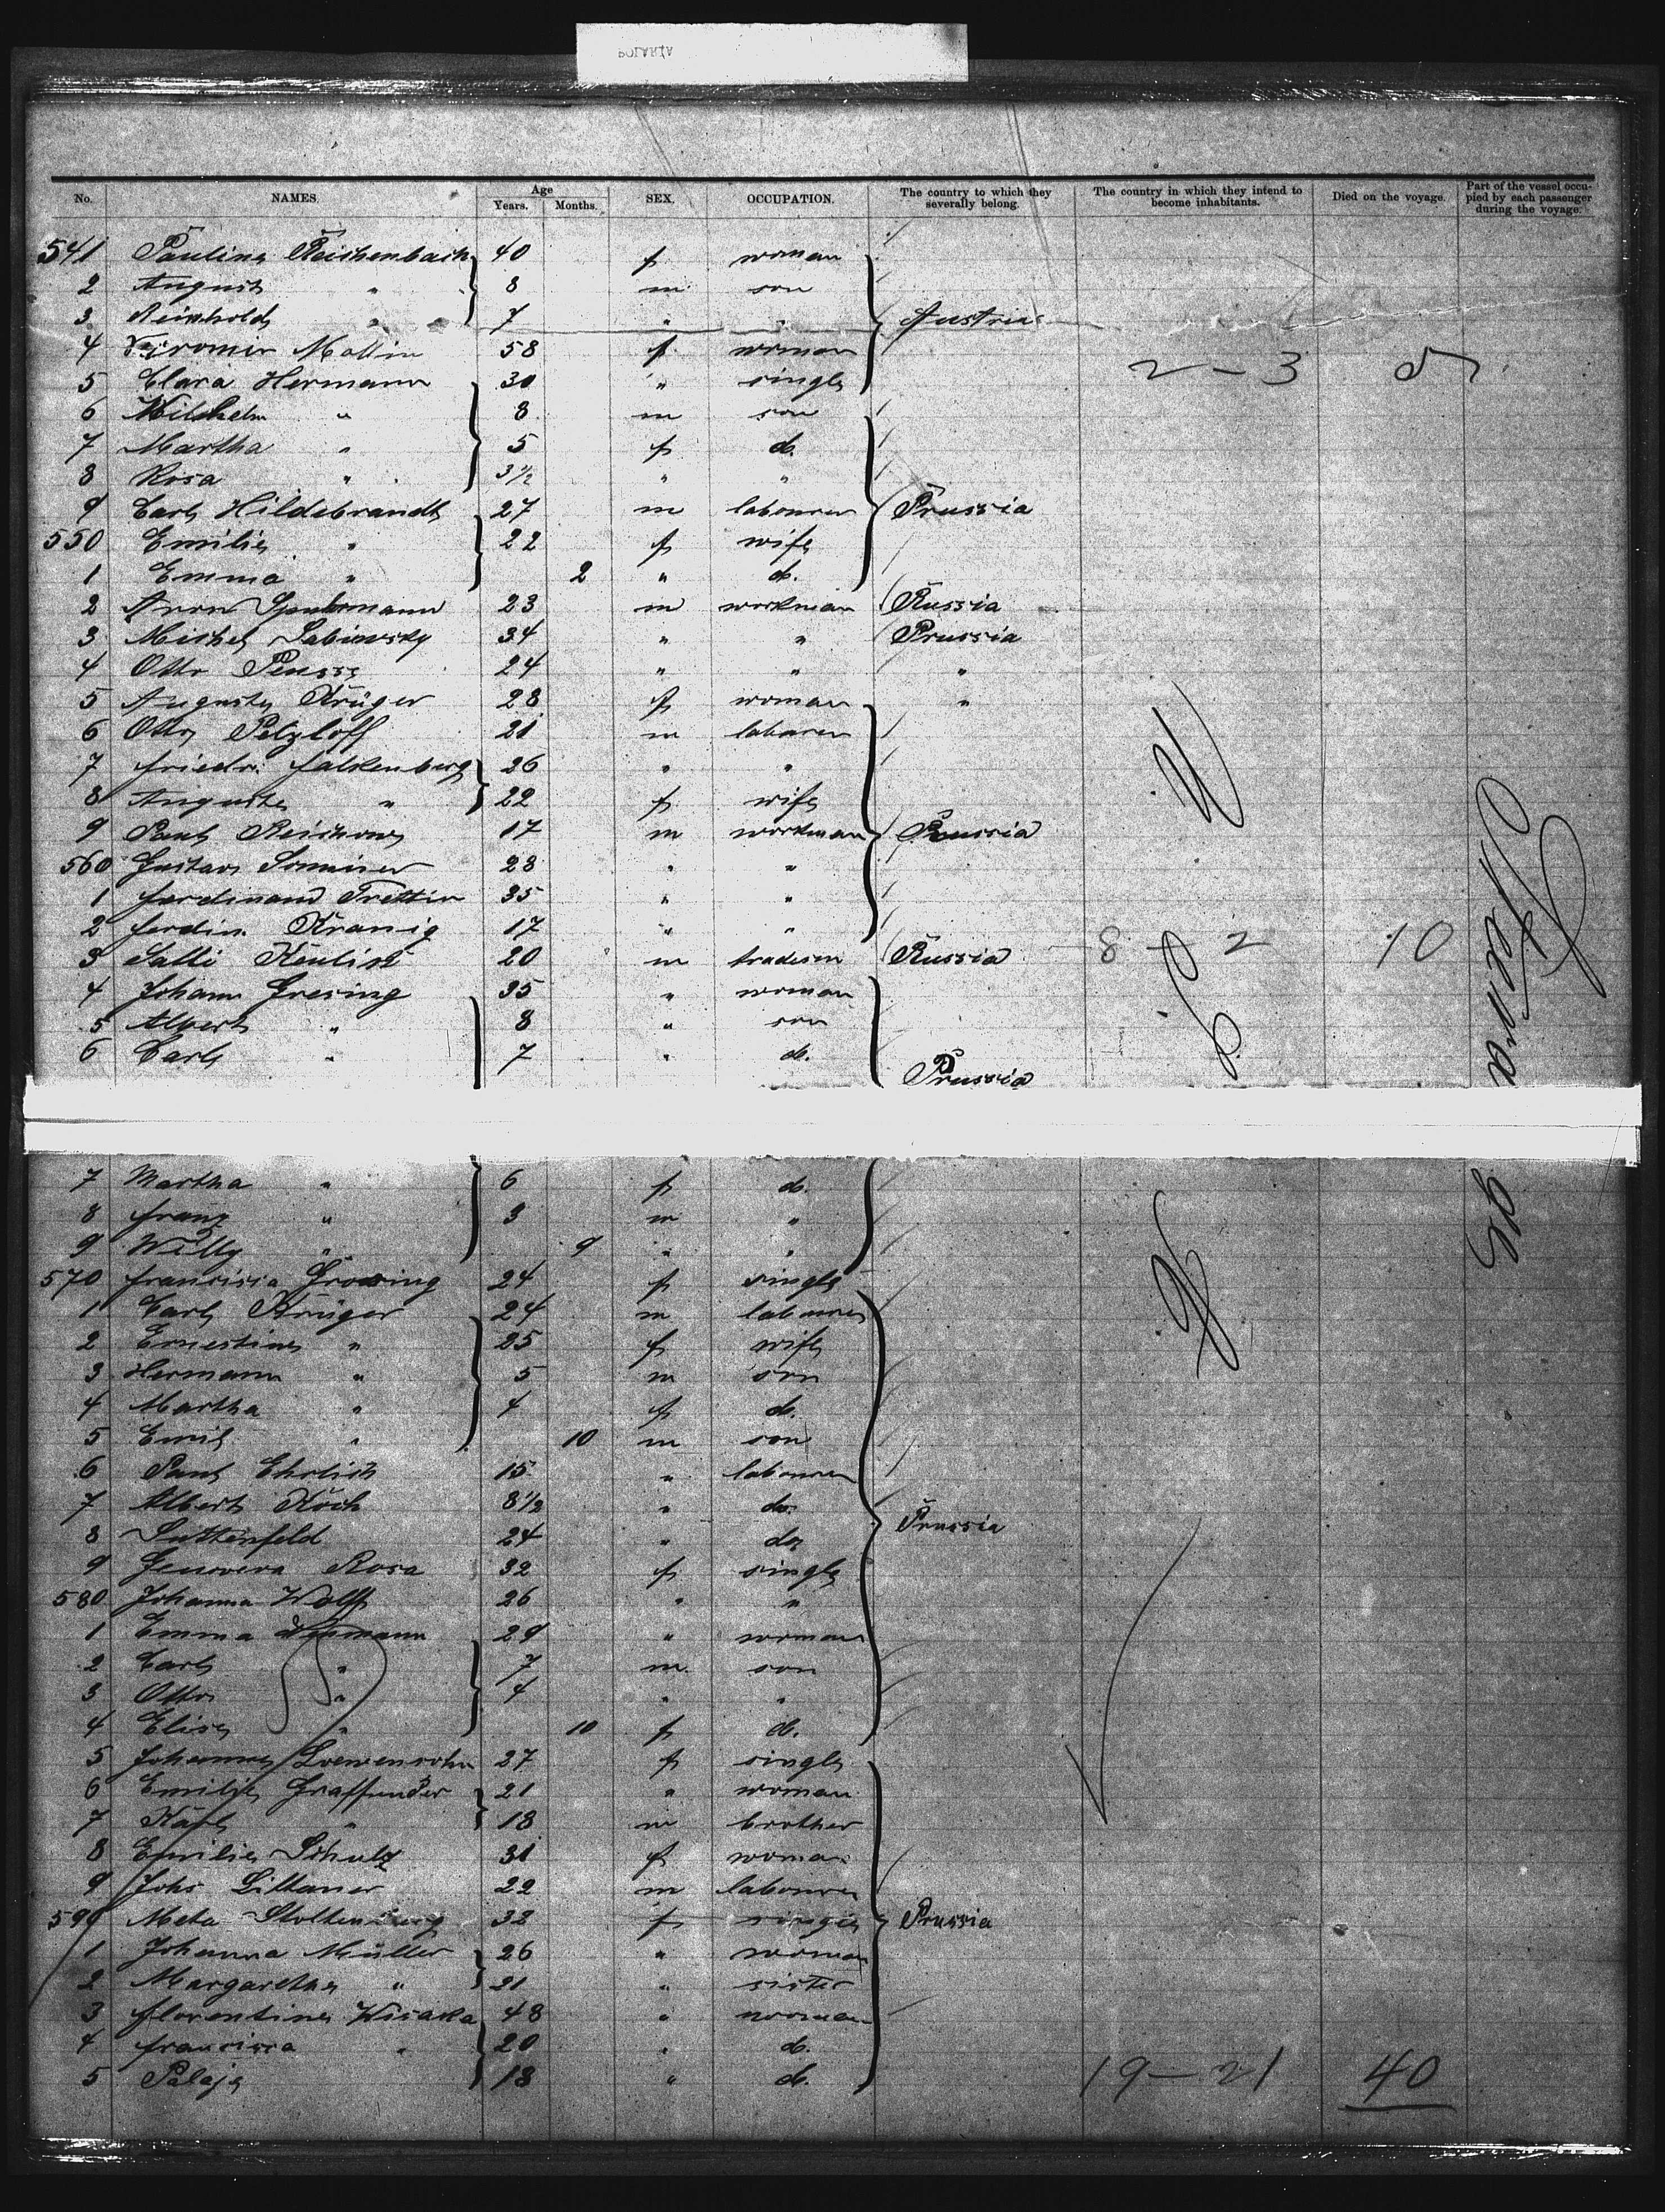 POLARIA
No. NAMES. Age Years. Months. SEX. OCCUPATION. The country to which they severally belong. The country in which they intend to become inhabitants. Died on the voyage. Part of the vessel occupied by each passenger during the voyage.
541 Pauline Reichenbach 40 f woman
2 August " 8 m son
3 Reinhold " 7 " " Austria
4 Mollin 58 f woman
2-3 5
5 Clara Hermann 30 " single
6 Wilhelm " 8 m son
7 Martha " 5 f d.
8 Rosa " 3 1/2 " "
9 Carl Hildebrandt 27 m labourer Prussia
550 Emilie " 22 f wife
1 Emma " 2 " d.
2 Aron 23 m workman Russia
3 Michel Sabinsky 34 " " Prussia
4 Otto 24 " " "
5 Auguste Krüger 28 f woman "
6 Otto Petzloff 21 m labourer
7 Friedr. Falkenberg 26 " "
8 Auguste " 22 f wife
9 Paul 17 m workman Prussia
560 Gustav 28 " "
1 Ferdinand Trettin 35 " "
2 Ferdin. Kranig 17 " "
3 Salli 20 m tradesm Russia 8 - 2 10
4 Johann Gresing 35 " woman
5 Albert " 8 " son
6 Carl " 7 " d.
Prussia
7 Martha " 6 f d.
8 Franz " 3 m "
9 Willy " 9 " "
570 Francisca 24 f single
1 Carl Krüger 24 m labourer
2 Ernestine " 25 f wife
3 Hermann " 5 m son
4 Martha " 4 f d.
5 Emil " 10 m son
6 Paul Ehrlich 15 " labourer
7 Albert Koch 8 1/2 " do.
Prussia
8 Suttenfeld 24 " do
9 Genovera Rosa 32 f single
580 Johanna Wolff 26 " "
1 Emma 29 " woman
2 Carl " 7 m. son
3 Otto " 4 " "
4 Elise " 10 f d.
5 Johanna Loewensohn 27 f single
6 Emilie Graffunder 21 " woman
7 Karl " 18 m brother
8 Emilie Schulz 31 f woman
9 Johs Littauer 22 m labourer
590 Meta Stoltenberg 32 f single Prussia
1 Johanna Müller 26 " woman
2 Margarethe " 21 " sister
3 Florentine 48 " woman
4 Francisca " 20 " d.
5 18 " d.
19 - 21 40